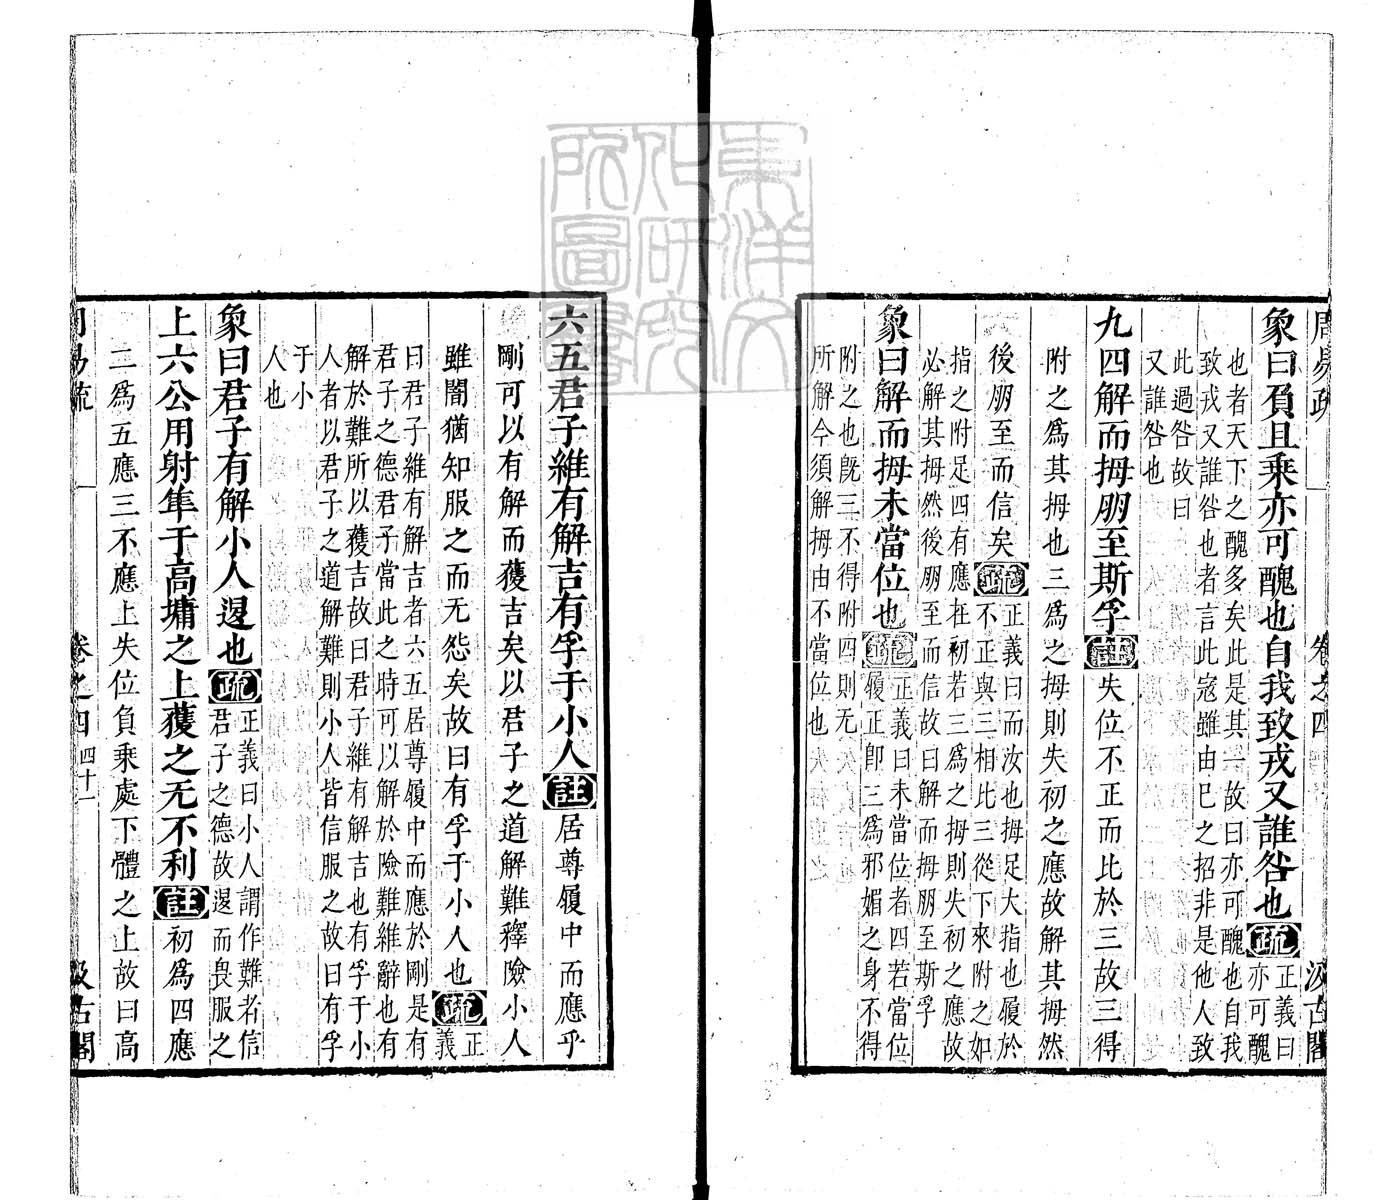 周易疏 卷之四 汲古閣
象曰負且乘亦可醜也自我致戎又誰咎也疏
正義曰
亦可醜
也者天下之醜多矣此是其一故曰亦可醜也自我
致戎又誰咎也者言此寇雖由已之招非是他人致
此過咎故曰
又誰咎也
九四解而拇朋至斯孚註失位不正而比於三故三得
附之爲其拇也三爲之拇則失初之應故解其拇然
後朋至而信矣疏
正義曰而汝也拇足大指也履於
不正與三相比三從下來附之如
指之附足四有應在初若三爲之拇則失初之應故
必解其拇然後朋至而信故曰解而拇朋至斯孚
象曰解而拇未當位也疏
正義曰未當位者四若當位
履正卽三爲邪媚之身不得
附之也旣三不得附四則无
所解今須解拇由不當位也
六五君子維有解吉有孚于小人註居尊履中而應乎
剛可以有解而獲吉矣以君子之道解難釋險小人
雖闇猶知服之而无怨矣故曰有孚于小人也疏
正
義
曰君子維有解吉者六五居尊履中而應於剛是有
君子之德君子當此之時可以解於險難維辭也有
解於難所以獲吉故曰君子維有解吉也有孚于小
人者以君子之道解難則小人皆信服之故曰有孚
于小
人也
象曰君子有解小人退也疏
正義曰小人謂作難者信
君子之德故退而畏服之
上六公用射隼于高墉之上獲之无不利註初爲四應
二爲五應三不應上失位負乘處下體之上故曰高
周易疏 卷之四 四十一 汲古閣
東洋文
化研究
所圖書